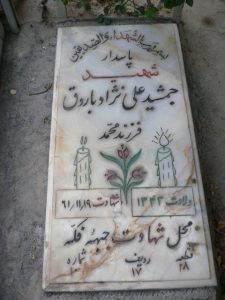 پاسدار
شهید
جمشید علی نژاد باروق
فرزند محمد
ولادت ۱۳۴۲ شهادت ۶۱/۱۱/۱۹
محل شهادت جبهه فکه
قطعه ۲۸ ردیف ۱۷ شماره